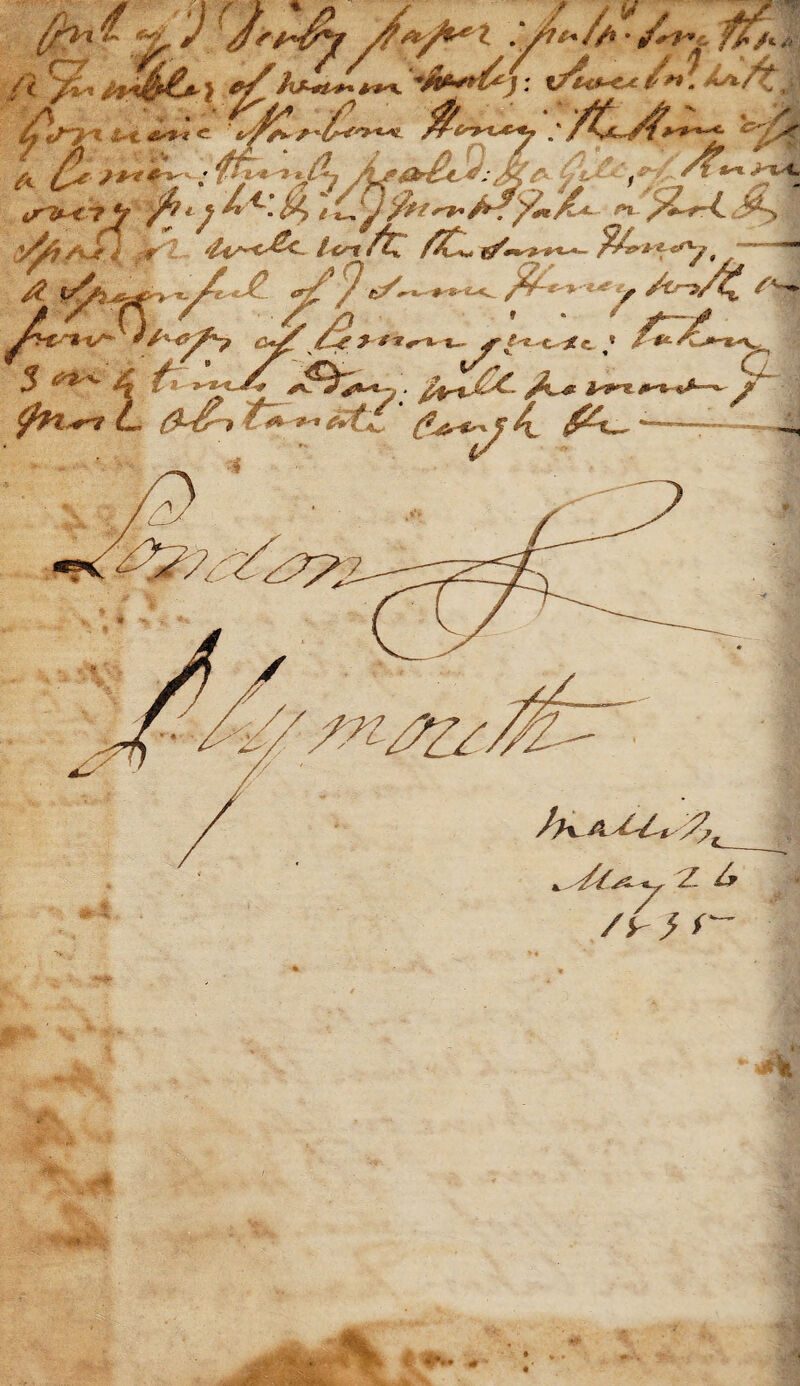 Out of ye Derby paper: put in. something
a Tumbler of warm water: Sweetnd. with
Genuene Narbone Honey: the Rine of
a Lemon: thinly pealed: & a Gill, of Rum
every Night: & in ye Morng. Take a
it well with the same Honey.
A Spoonful of ye same Honey, with a
few Drops of Lemon juise: taken
3 or 4 times a Day: will remove ye
Most Obstanate Cough &c
London &
Plymouth
May 26
1835